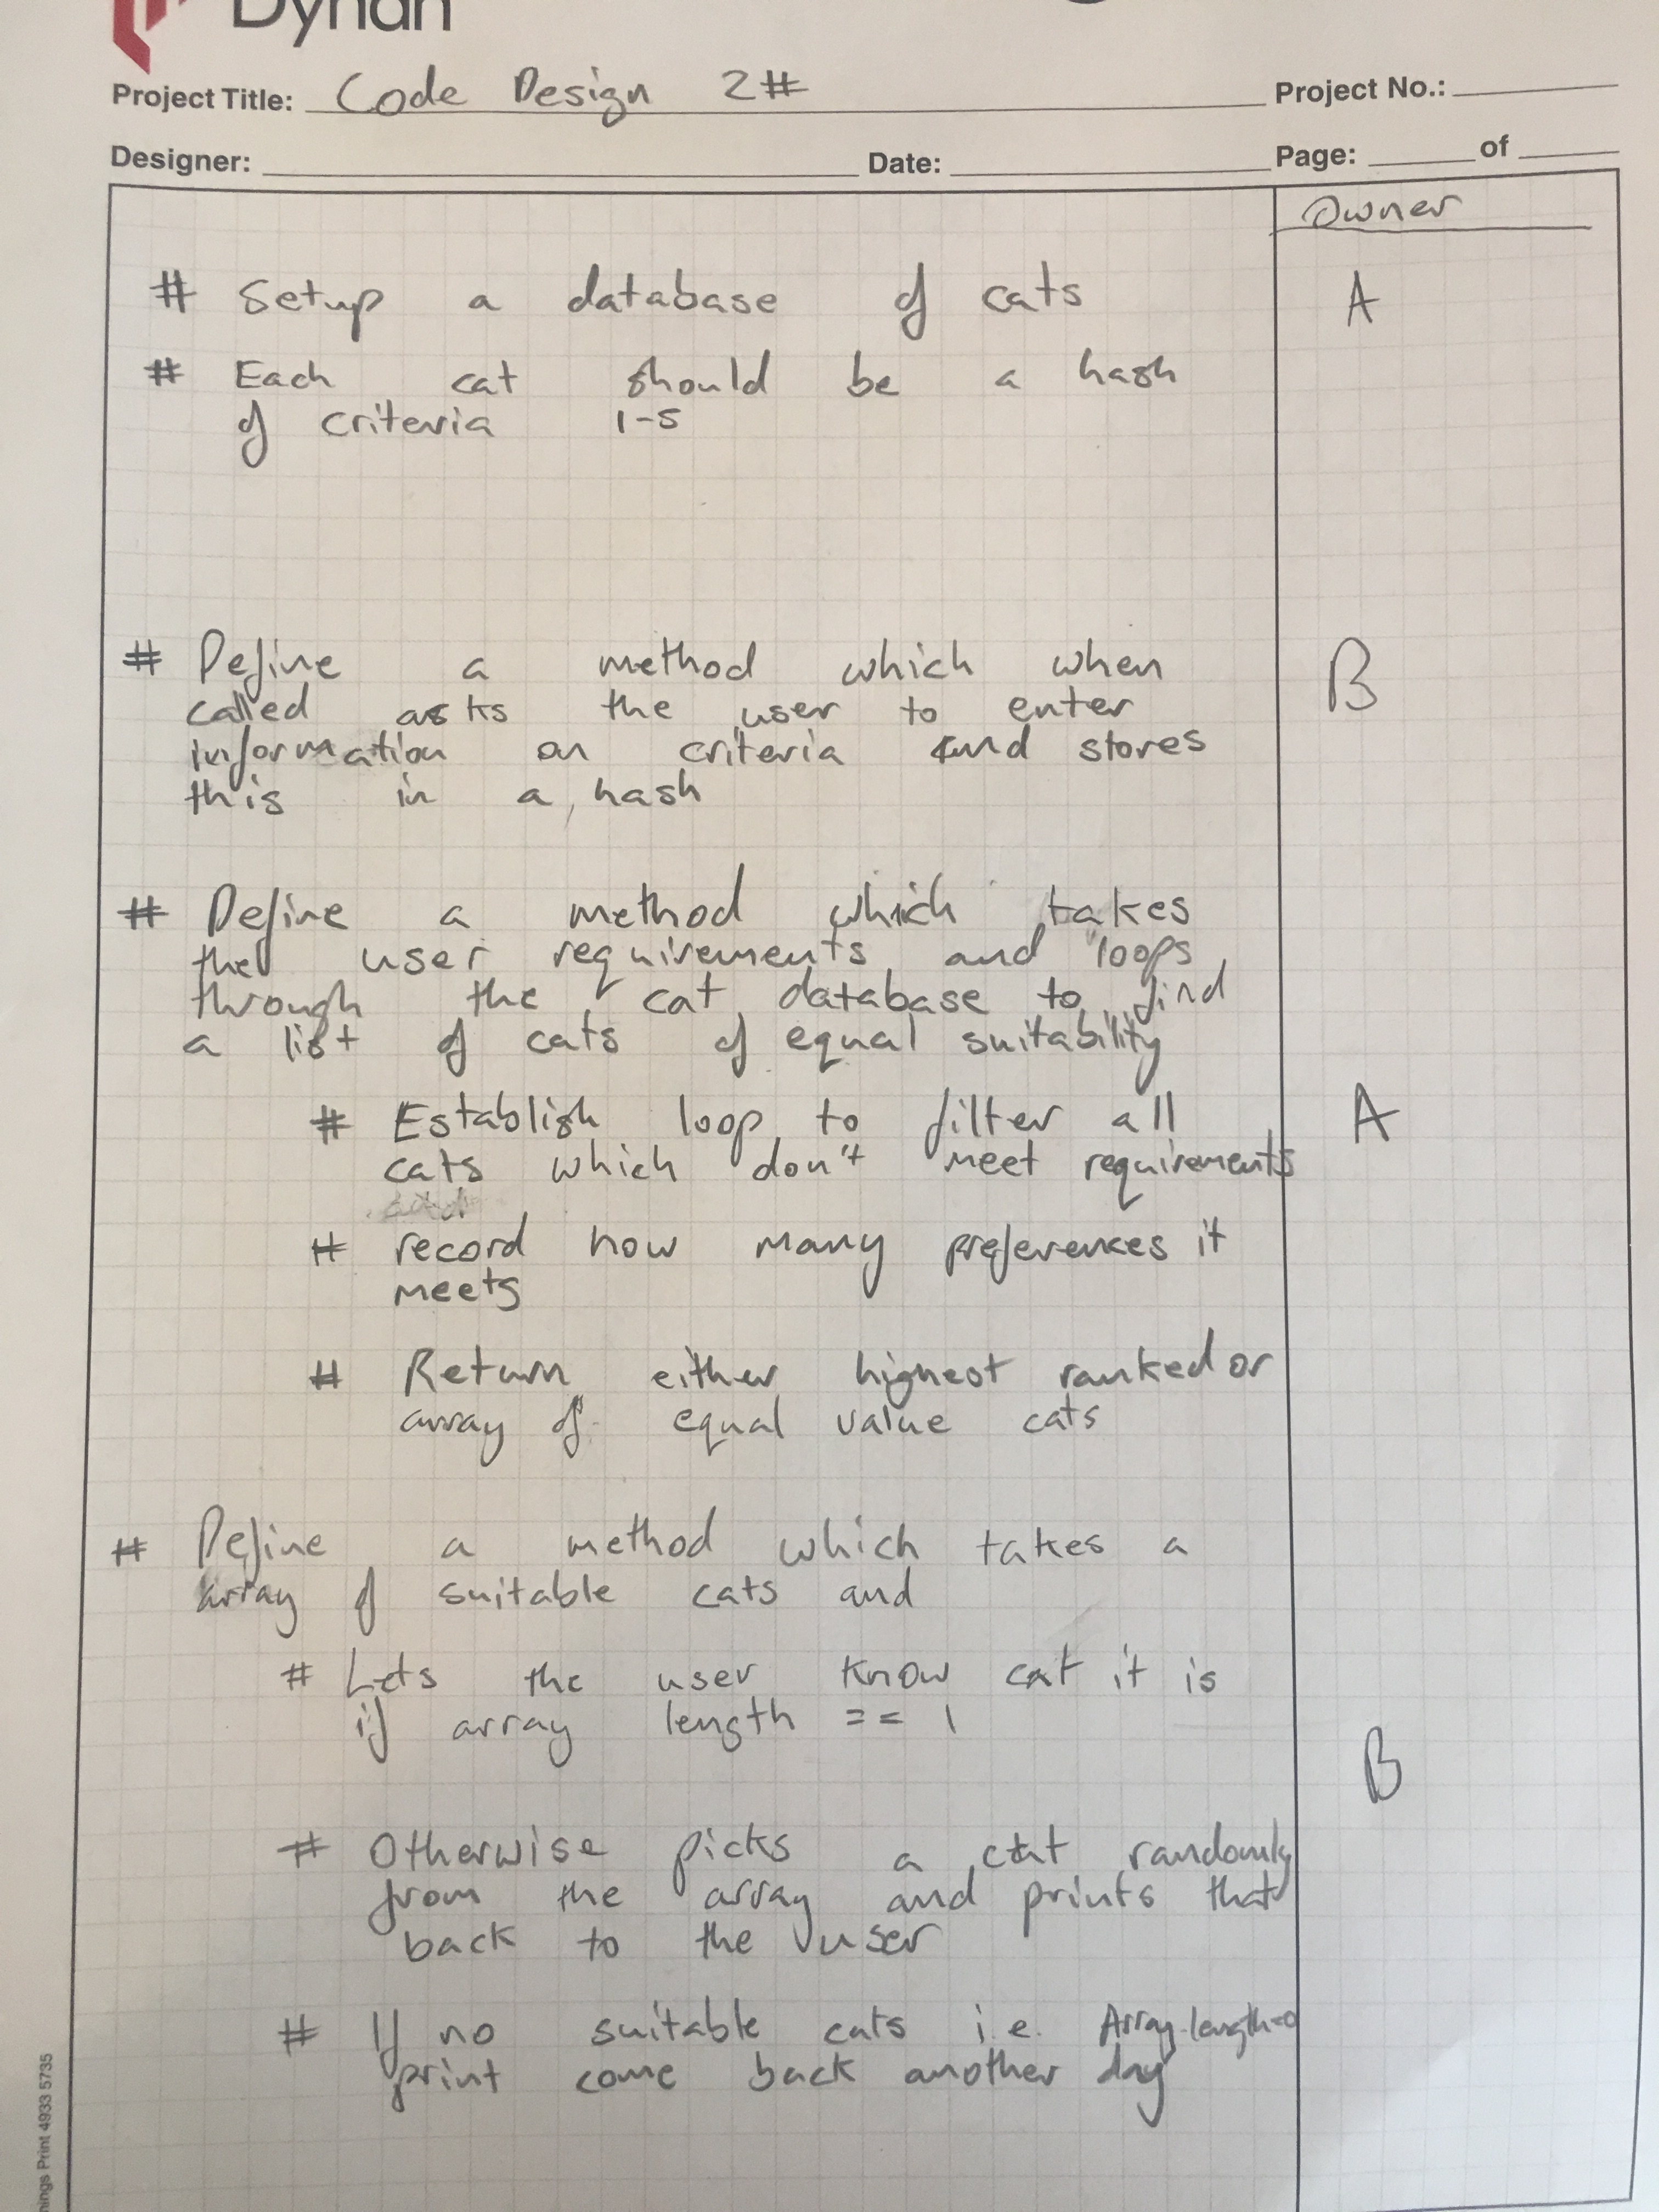 Dynan
Project Title: Code Design 2# Project No.:
Designer: Date: Page: of
Owner
# Setup a database of cats A
# Each cat should be a hash
of criteria 1-5
# Define a method which when B
called asks the user to enter
information on criteria and stores
this in a hash
# Define a method which takes
the user requirements and loops
through the cat database to find
a list of cats of equal suitability
# Establish loop to filter all A
cats which don't meet requirements
# record how many preferences it
meets
# Return either highest ranked or
array of equal value cats
# Define a method which takes a
array of suitable cats and
# Lets the user know cat it is
if array length == 1
B
# Otherwise picks a cat randomly
from the array and prints that
back to the user
# If no suitable cats i.e. Array.length=0
print come back another day
nings Print 4933 5735